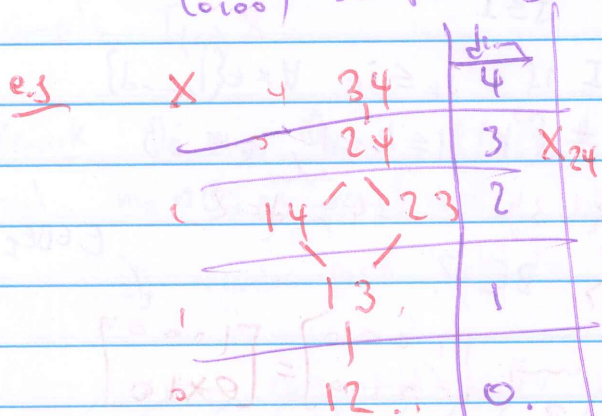 (0100)
dim
e.g X 34 4
24 3 X24
14 23 2
13 1
12 0.